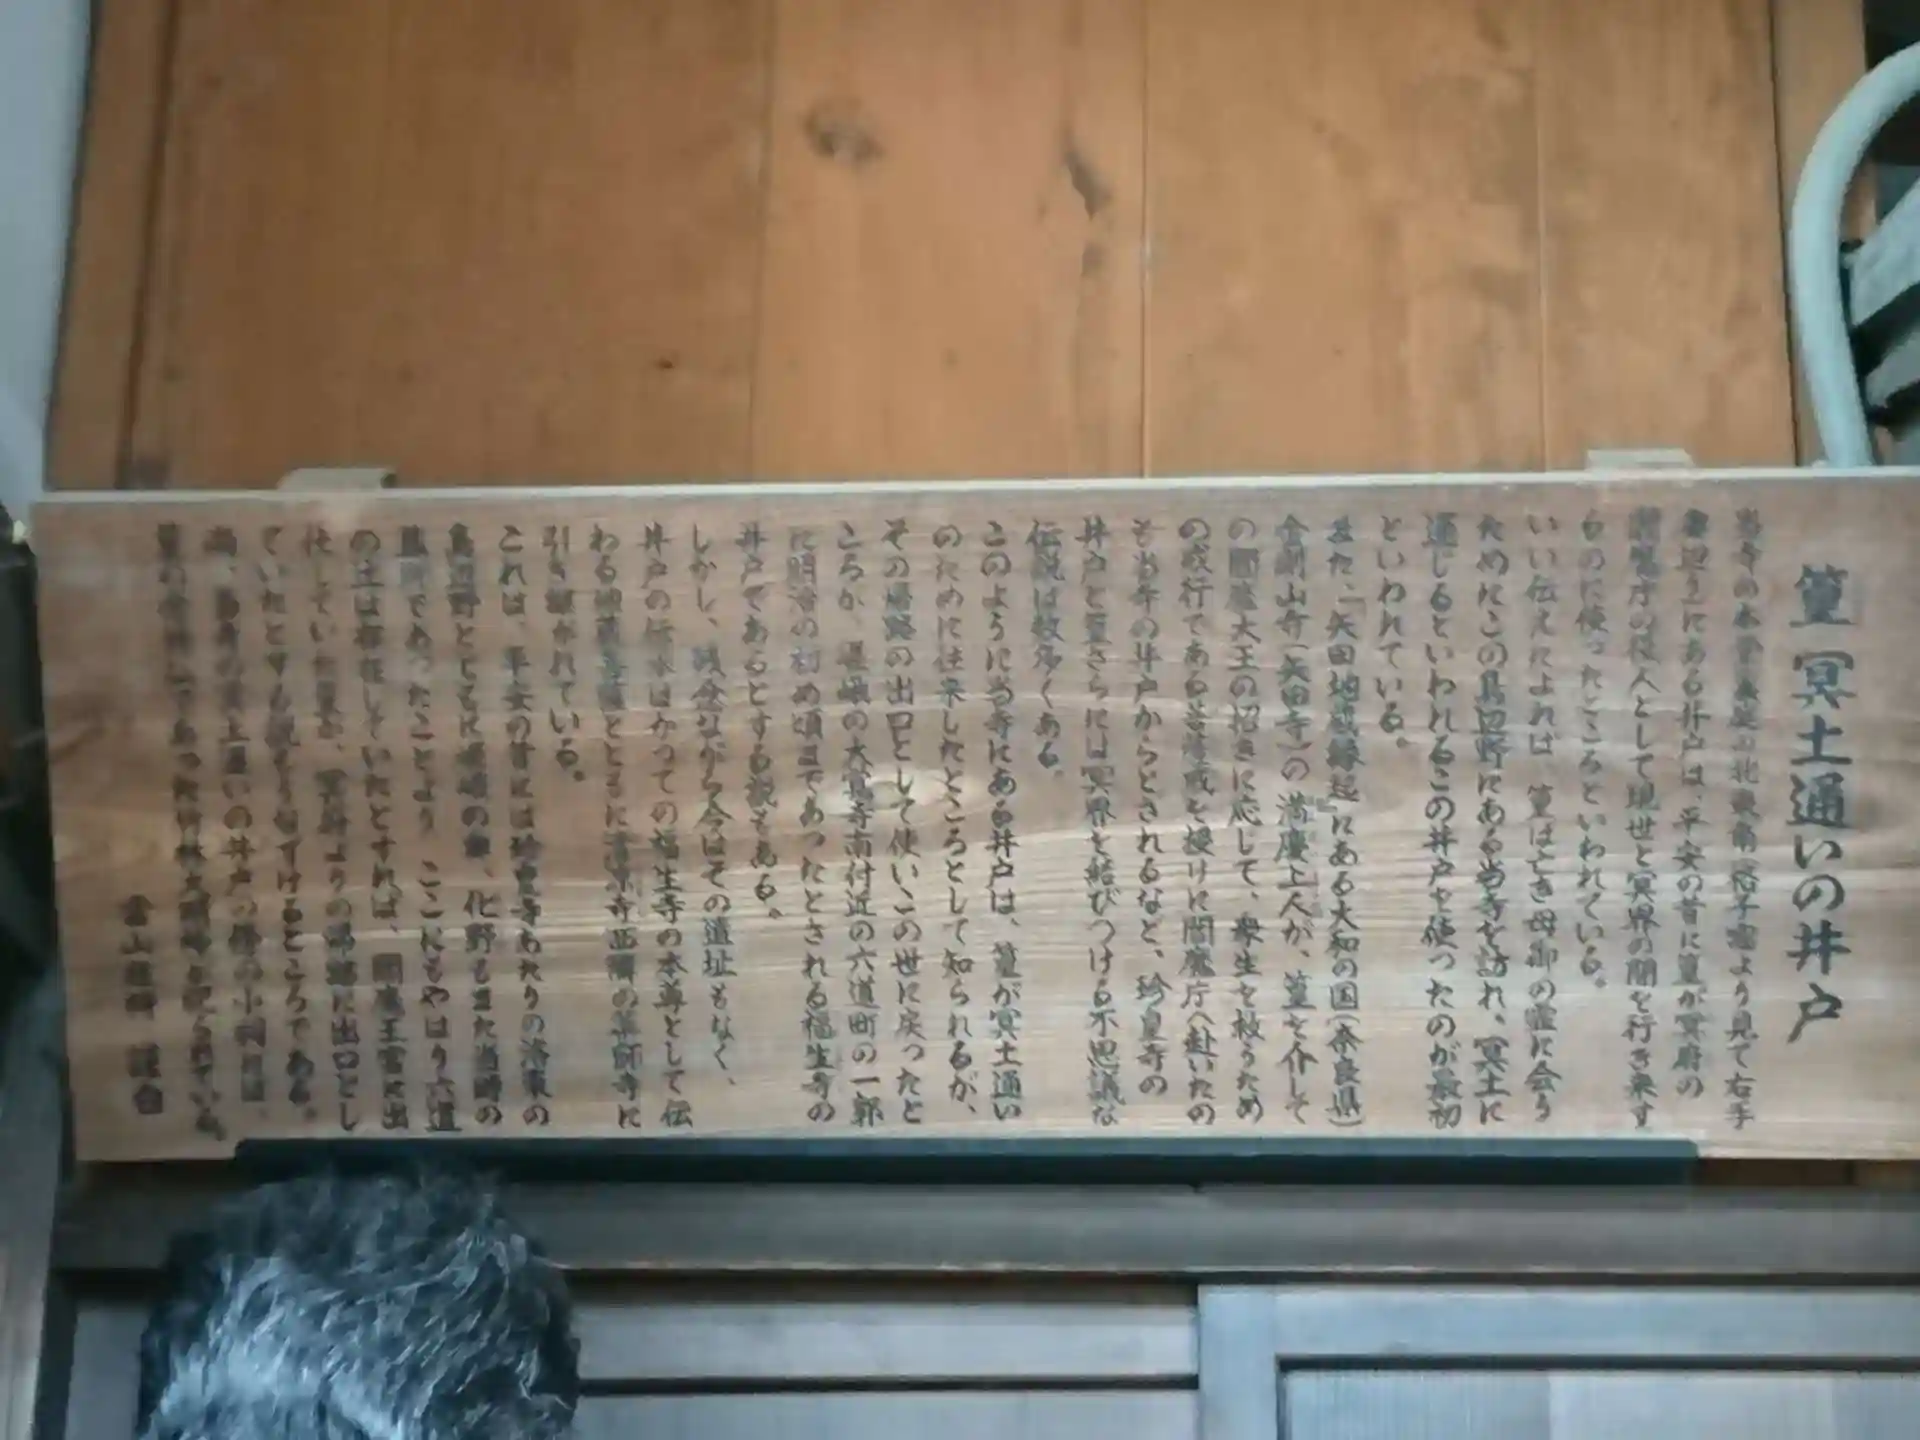 篁 冥土通いの井戸
当寺の本堂裏庭の北東角(格子窓より見て右手
奥辺り)にある井戸は、平安の昔に篁が冥府の
閻魔庁の役人として現世と冥界の間を行き来す
るのに使ったところといわれている。
いい伝えによれば 篁は亡き母御の霊に会う
ためにこの鳥辺野にある当寺を訪れ、冥土に
通じるといわれるこの井戸を使ったのが最初
といわれている。
また、「矢田地蔵縁起」にある大和の国(奈良県)
金剛山寺(矢田寺)の満慶上人が、篁を介して
の閻魔大王の招きに応じて、衆生を救うため
の戒行である菩薩戒を授けに閻魔庁へ赴いたの
も当寺の井戸からとされるなど、珍皇寺の
井戸と篁さらには冥界を結びつける不思議な
伝説は数多くある。
このように当寺にある井戸は、篁が冥土通い
のために往来したところとして知られるが、
その帰路の出口として使いこの世に戻ったと
ころが、嵯峨の大覚寺南付近の六道町の一郭
に明治の初め頃まであったとされる福生寺の
井戸であるとする説もある。
しかし、残念ながら今はその遺址もなく、
井戸の伝承はかつての福生寺の本尊として伝
わる地蔵菩薩とともに清凉寺西隣の薬師寺に
引き継がれている。
これは、平安の昔には珍皇寺あたりの洛東の
鳥辺野とともに嵯峨の奥、化野もまた当時の
墓所であったことより ここにもやはり六道
の辻は存在していたとすれば、閻魔王宮に出
仕していた篁が、冥府よりの帰路に出口とし
ていたとする説もうなずけるところである。
尚、当寺の冥土通いの井戸の傍の小祠には、
篁の念持仏であった竹林大明神を祀られている。